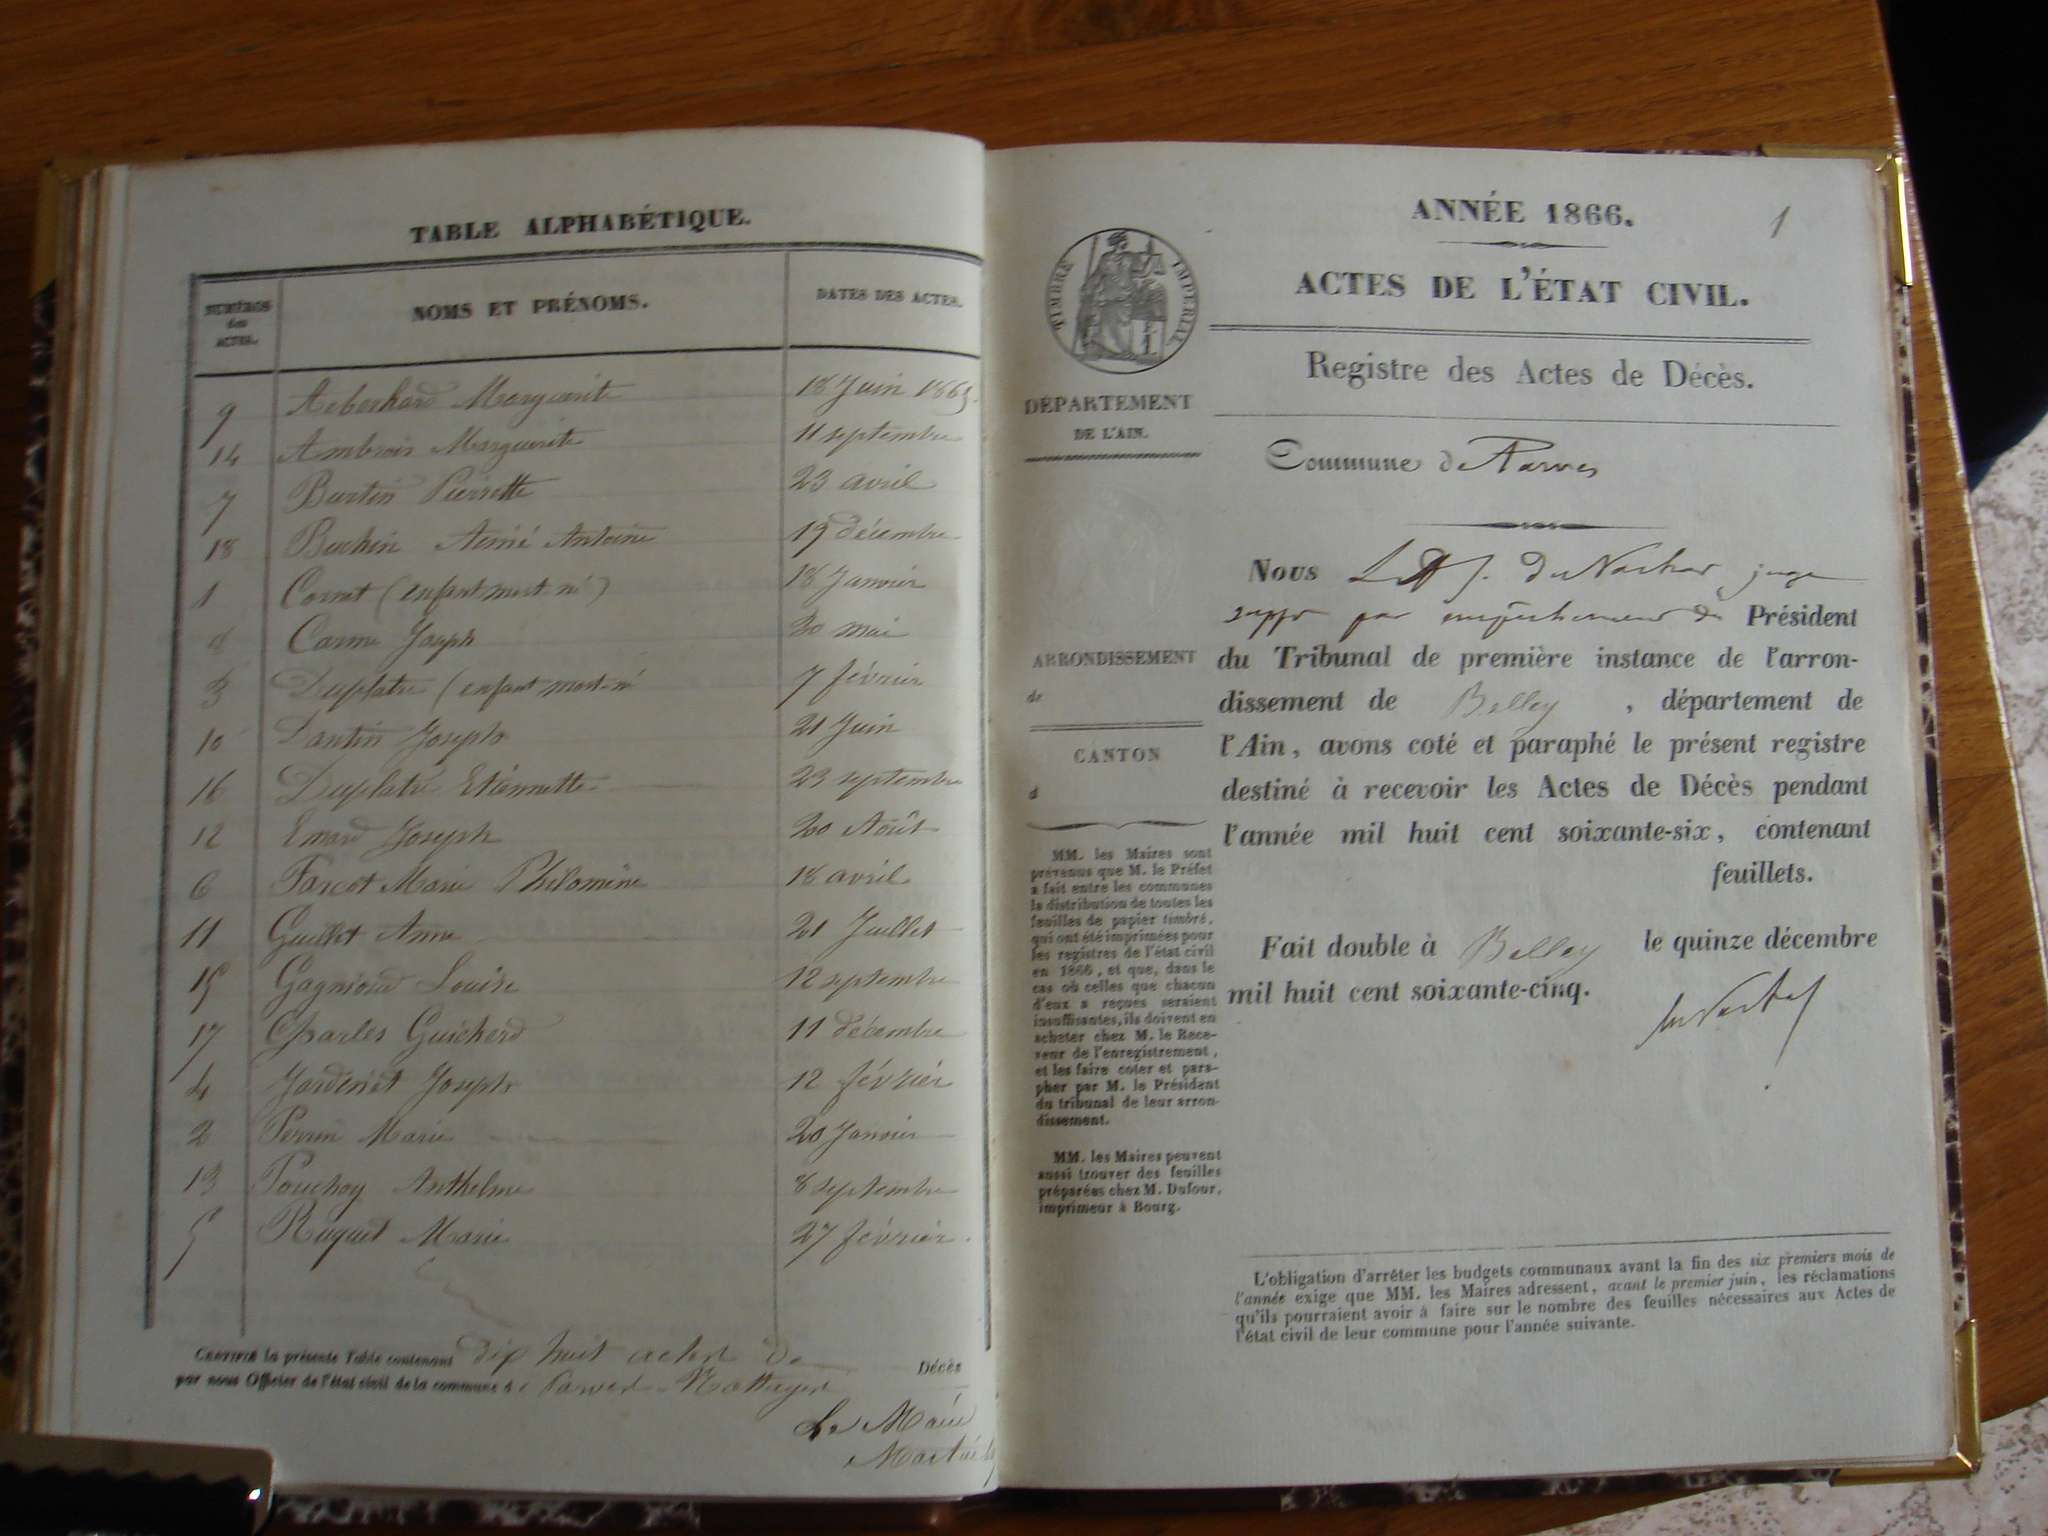 TABLE ALPHABÉTIQUE.
NUMÉROS des ACTES.
NOMS ET PRÉNOMS.
DATES DES ACTES.
9 Aeberhard Marguerite 18 Juin 1865.
14 Ambrois Marguerite 11 septembre
7 Burtin Pierrette 23 avril
18 Buchin Aimé Antoine 19 décembre
1 Cornet (enfant mort né) 18 Janvier
8 Carme Joseph 30 mai
3 Duplatre (enfant mort-né 7 février
10 Dantin Joseph 21 Juin
16 Duplatre Etiennette 23 septembre
12 Emard Joseph 20 Août
6 Farcot Marie Philomène 18 avril
11 Guillot Anne 21 Juillet
15 Gagnioud Louise 12 septembre
17 Charles Guicherd 11 décembre
4 Jardinet Joseph 12 février
2 Perrin Marie 20 Janvier
13 Pouchoy Anthelme 8 septembre
5 Ruguet Marie 27 février.
CERTIFIÉ la présente Table contenant dix huit actes de Décès
par nous Officier de l'état civil de la commune d Parves
Le Maire
ANNÉE 1866.
1
ACTES DE L'ÉTAT CIVIL.
TIMBRE IMPERIAL
Registre des Actes de Décès.
DÉPARTEMENT
DE L'AIN.
Commune de Parves
Nous juge
supp par empêchement du Président
du Tribunal de première instance de l'arron-
dissement de Belley , département de
l'Ain, avons coté et paraphé le présent registre
destiné à recevoir les Actes de Décès pendant
l'année mil huit cent soixante-six, contenant
feuillets.
Fait double à Belley le quinze décembre
mil huit cent soixante-cinq.
ARRONDISSEMENT
de
CANTON
d
MM. les Maires sont
prévenus que M. le Préfet
a fait entre les communes
la distribution de toutes les
feuilles de papier timbré,
qui ont été imprimées pour
les registres de l'état civil
en 1866, et que, dans le
cas où celles que chacun
d'eux a reçues seraient
insuffisantes, ils doivent en
acheter chez M. le Rece-
veur de l'enregistrement,
et les faire coter et para-
pher par M. le Président
du tribunal de leur arron-
dissement.
MM. les Maires peuvent
aussi trouver des feuilles
préparées chez M. Dufour,
imprimeur à Bourg.
L'obligation d'arrêter les budgets communaux avant la fin des six premiers mois de
l'année exige que MM. les Maires adressent, avant le premier juin, les réclamations
qu'ils pourraient avoir à faire sur le nombre des feuilles nécessaires aux Actes de
l'état civil de leur commune pour l'année suivante.